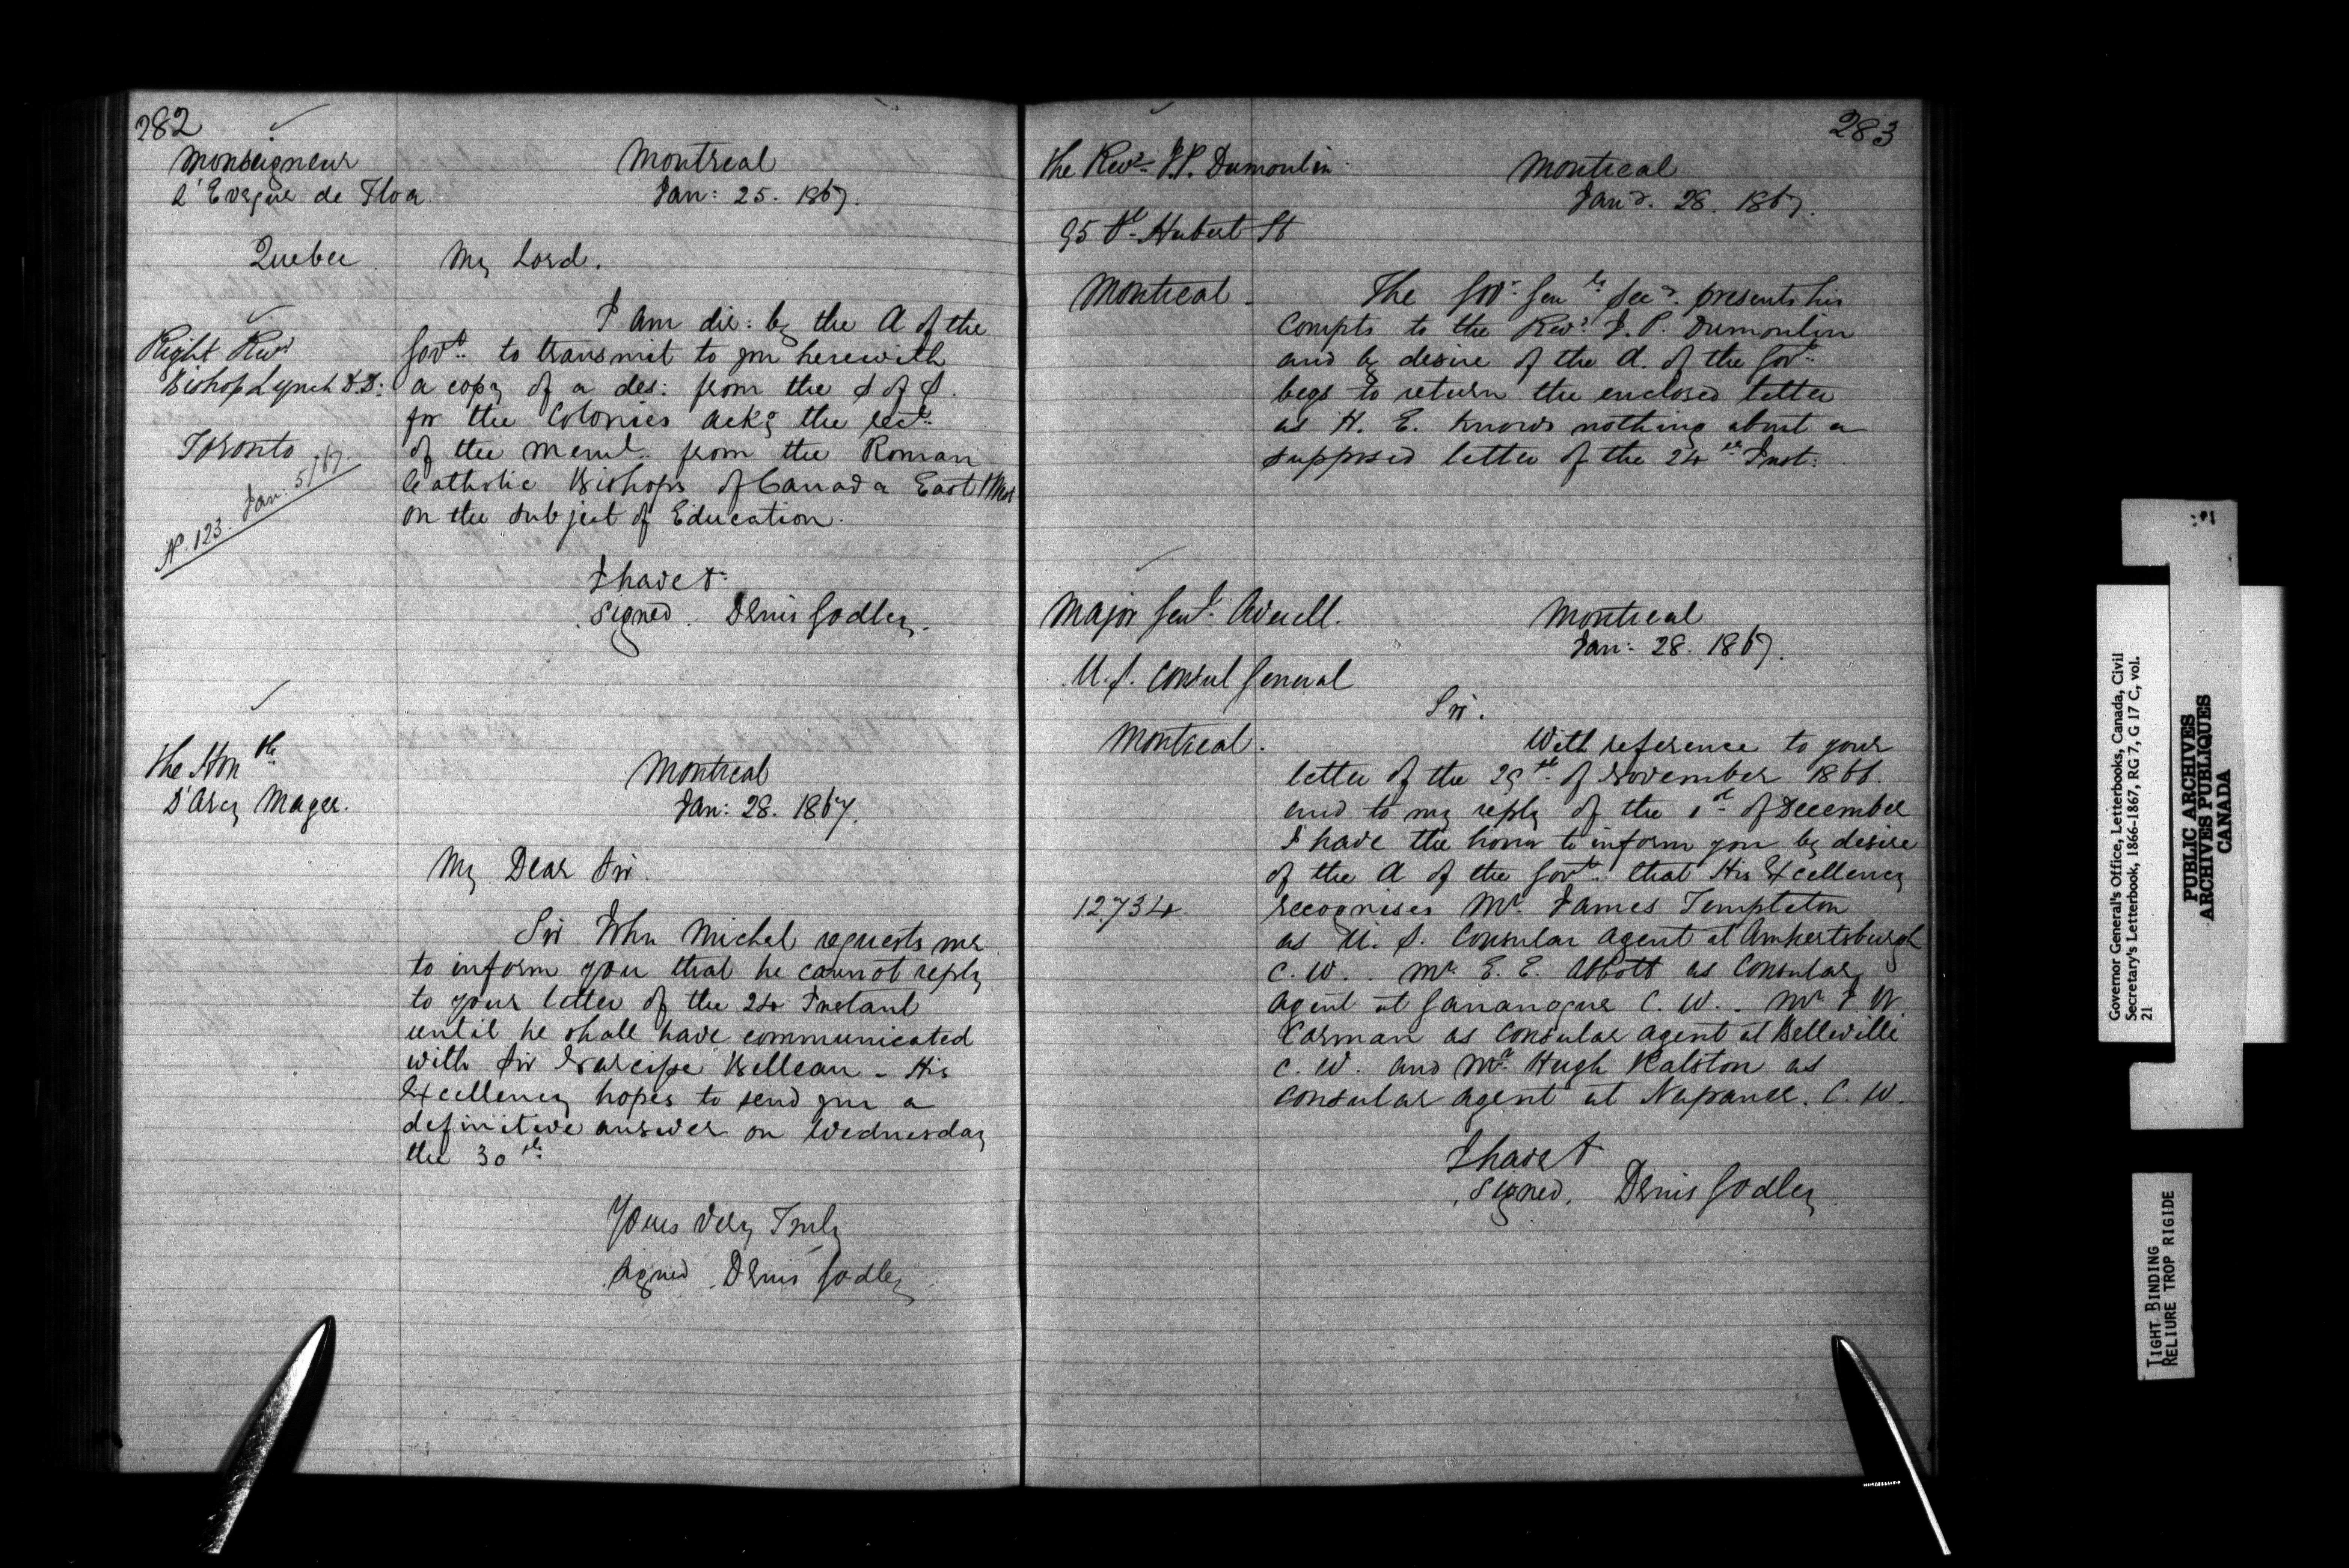 282
Monseigneur
l'Evèque de Tloa
Quebec
Right Revd
Bishop Lynch D.D:
Toronto
No. 123. Jan: 5/67.
Montreal
Jan: 25. 1867.
My Lord.
I am dir: by the A of the
Govt. to transmit to you herewith
a copy of a des: from the S of S.
for the Colonies ackg the rect.
of the meml. from the Roman
Catholic Bishops of Canada East & West
on the subject of Education.
I have &
signed. Denis Godley.
The Honble
D'Arcy Magee.
Montreal
Jan: 28. 1867.
My Dear Sir.
Sir John Michel requests me
to inform you that he cannot reply
to your letter of the 24 Instant
until he shall have communicated
with Sir Narcisse Belleau - His
Excellency hopes to send you a
definitive answer on Wednesday
the 30th
Yours Very Truly
signed. Denis Godley
283
The Revd. J.P. Dumoulin
95 St. Hubert St
Montreal.
Montreal
Jany. 28. 1867.
The Govr. Genls Secy. presents his
compts to the Revd. J. P. Dumoulin
and by desire of the A. of the Govt.
begs to return the enclosed letter
as H. E. knows nothing about a
supposed letter of the 24th Inst:
Major Genl. Averell.
U.S. Consul General
Montreal.
12734.
Montreal
Jan: 28. 1867.
Sir.
With reference to your
letter of the 29th of November 1866.
and to my reply of the 1st of December
I have the honor to inform you by desire
of the A of the Govt. that His Excellency
recognises Mr. James Templeton
as U. S. Consular Agent at Amhertsburgh
C. W. . Mr. E. E. Abbott as Consular
Agent at Gananoque C. W. . Mr J W.
Carman as Consular Agent at Belleville
C. W. and Mr. Hugh Ralston as
Consular Agent at Napanee. C. W.
I have &
signed. Denis Godley
Governor General's Office, Letterbooks, Canada, Civil
Secretary's Letterbook, 1866-1867, RG 7, G 17 C, vol.
21
PUBLIC ARCHIVES
ARCHIVES PUBLIQUES
CANADA
TIGHT BINDING
RELIURE TROP RIGIDE